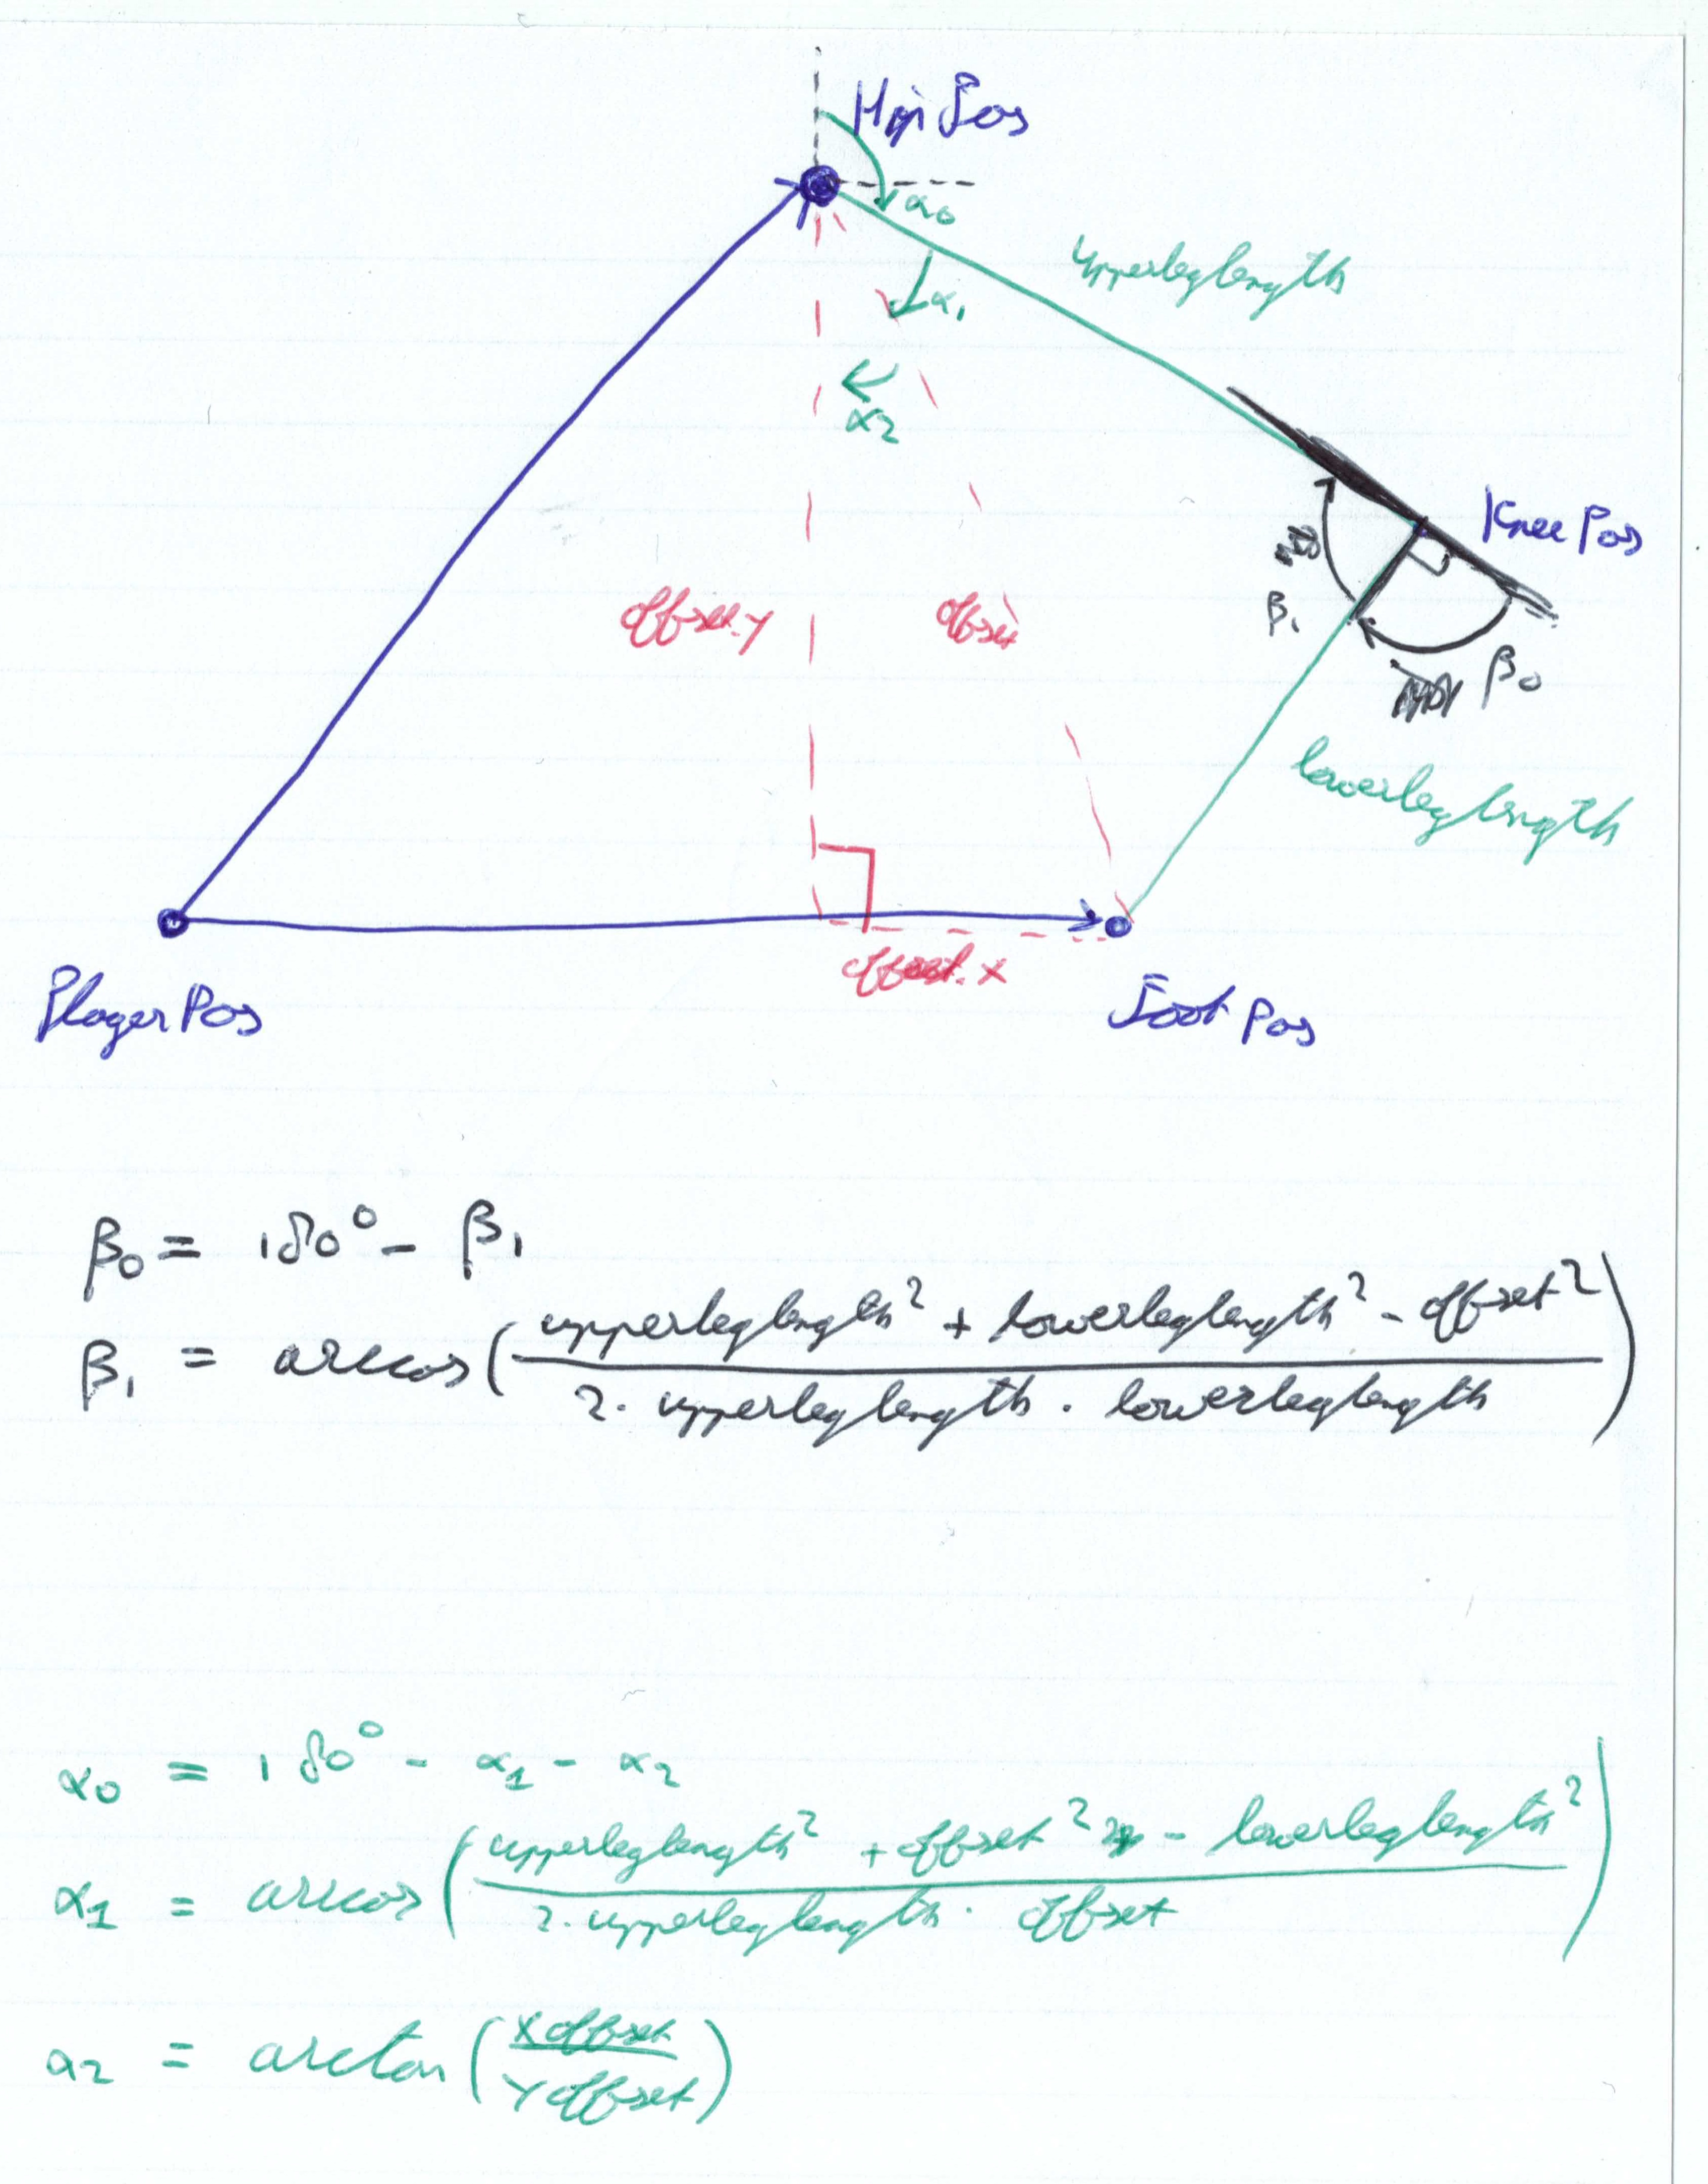 Hip Pos
α₀
upperleglength
α₁
α₂
Knee Pos
offset.y
offset
β₁
β₀
lowerleglength
offset.x
Player Pos
Foot Pos
β₀ = 180° - β₁
β₁ = arccos( (upperleglength² + lowerleglength² - offset²) / (2 · upperleglength · lowerleglength) )
α₀ = 180° - α₁ - α₂
α₁ = arccos( (upperleglength² + offset² - lowerleglength²) / (2 · upperleglength · offset) )
α₂ = arctan( Xoffset / Yoffset )